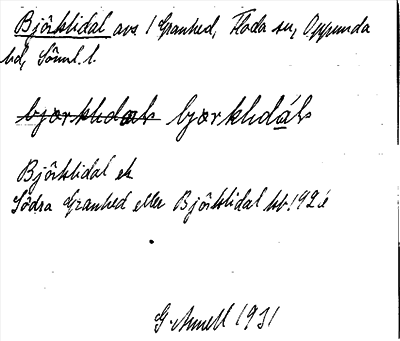 Björklidal avs 1 Granhed, Floda sn, Oppunda
hd, Söml. l.
bjærklidals bjærklidáls
Björklidal ek
Södra Granhed eller Björklidal hb 192
G. Annell 1931